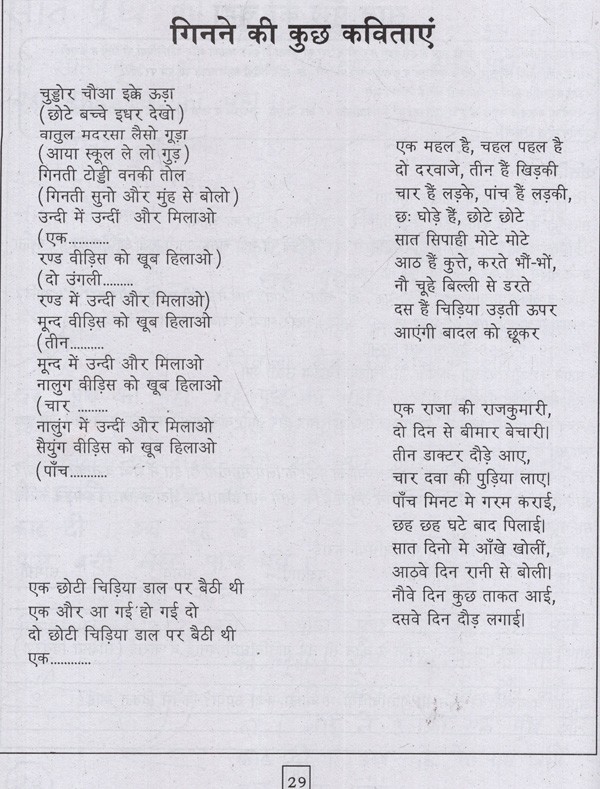 गिनने की कुछ कविताएं
चुड्डोर चौआ इक्के ऊड़ा
(छोटे बच्चे इधर देखो)
वातुल मदरसा लैसो गूड़ा
(आया स्कूल ले लो गुड़)
गिनती टोड्डी वनकी तोल
(गिनती सुनो और मुंह से बोलो)
उन्दी में उन्दीं और मिलाओ
(एक............
रण्ड वीड़िस को खूब हिलाओ)
(दो उंगली.........
रण्ड में उन्दी और मिलाओ)
मून्द वीड़िस को खूब हिलाओ
(तीन..........
मून्द में उन्दी और मिलाओ
नालुग वीड़िस को खूब हिलाओ
(चार .........
नालुंग में उन्दीं और मिलाओ
सैयुंग वीड़िस को खूब हिलाओ
(पाँच............
एक छोटी चिड़िया डाल पर बैठी थी
एक और आ गई हो गई दो
दो छोटी चिड़िया डाल पर बैठी थी
एक............
एक महल है, चहल पहल है
दो दरवाजे, तीन हैं खिड़की
चार हैं लड़के, पांच हैं लड़की,
छः घोड़े हैं, छोटे छोटे
सात सिपाही मोटे मोटे
आठ हैं कुत्ते, करते भौं-भों,
नौ चूहे बिल्ली से डरते
दस हैं चिड़िया उड़ती ऊपर
आएंगी बादल को छूकर
एक राजा की राजकुमारी,
दो दिन से बीमार बेचारी।
तीन डाक्टर दौड़े आए,
चार दवा की पुड़िया लाए।
पाँच मिनट मे गरम कराई,
छह छह घटे बाद पिलाई।
सात दिनो मे आँखे खोलीं,
आठवे दिन रानी से बोली।
नौवे दिन कुछ ताकत आई,
दसवे दिन दौड़ लगाई।
29